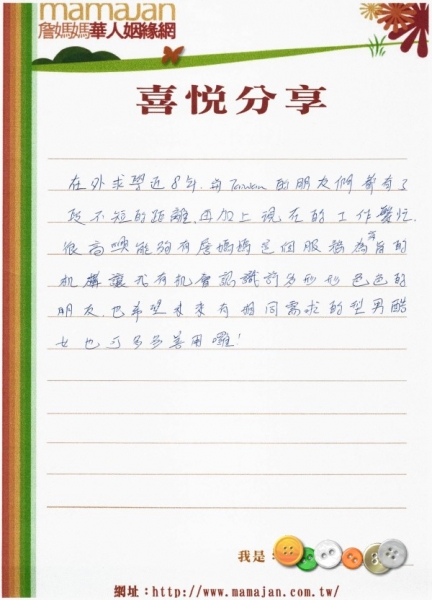 mamajan
詹媽媽華人姻緣網
喜悅分享
在外求學近8年,與Taiwan的朋友們都有了
段不短的距離,再加上現在的工作繁忙.
很高興能夠有詹媽媽這個服務為宗旨的
机構讓我有机會認識許多形形色色的
朋友.也希望未來有相同需求的型男酷
女也可多多善用喔!
我是:
網址:http://www.mamajan.com.tw/